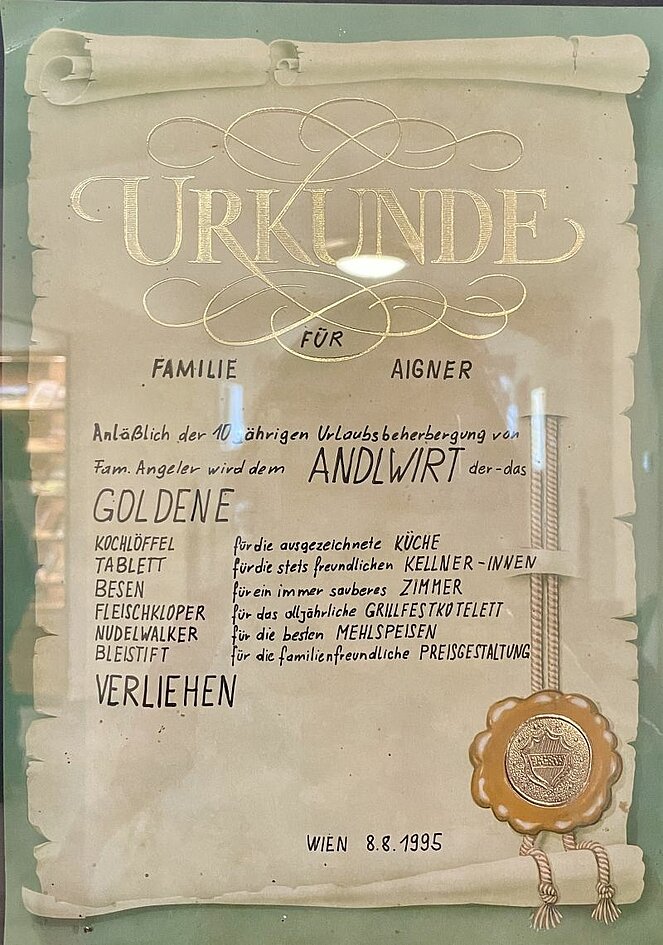 URKUNDE
FÜR
FAMILIE AIGNER
Anläßlich der 10 jährigen Urlaubsbeherbergung von
Fam. Angeler wird dem ANDLWIRT der-das
GOLDENE
KOCHLÖFFEL für die ausgezeichnete KÜCHE
TABLETT für die stets freundlichen KELLNER-INNEN
BESEN für ein immer sauberes ZIMMER
FLEISCHKLOPER für das alljährliche GRILLFESTKOTELETT
NUDELWALKER für die besten MEHLSPEISEN
BLEISTIFT für die familienfreundliche PREISGESTALTUNG
VERLIEHEN
WIEN 8.8.1995